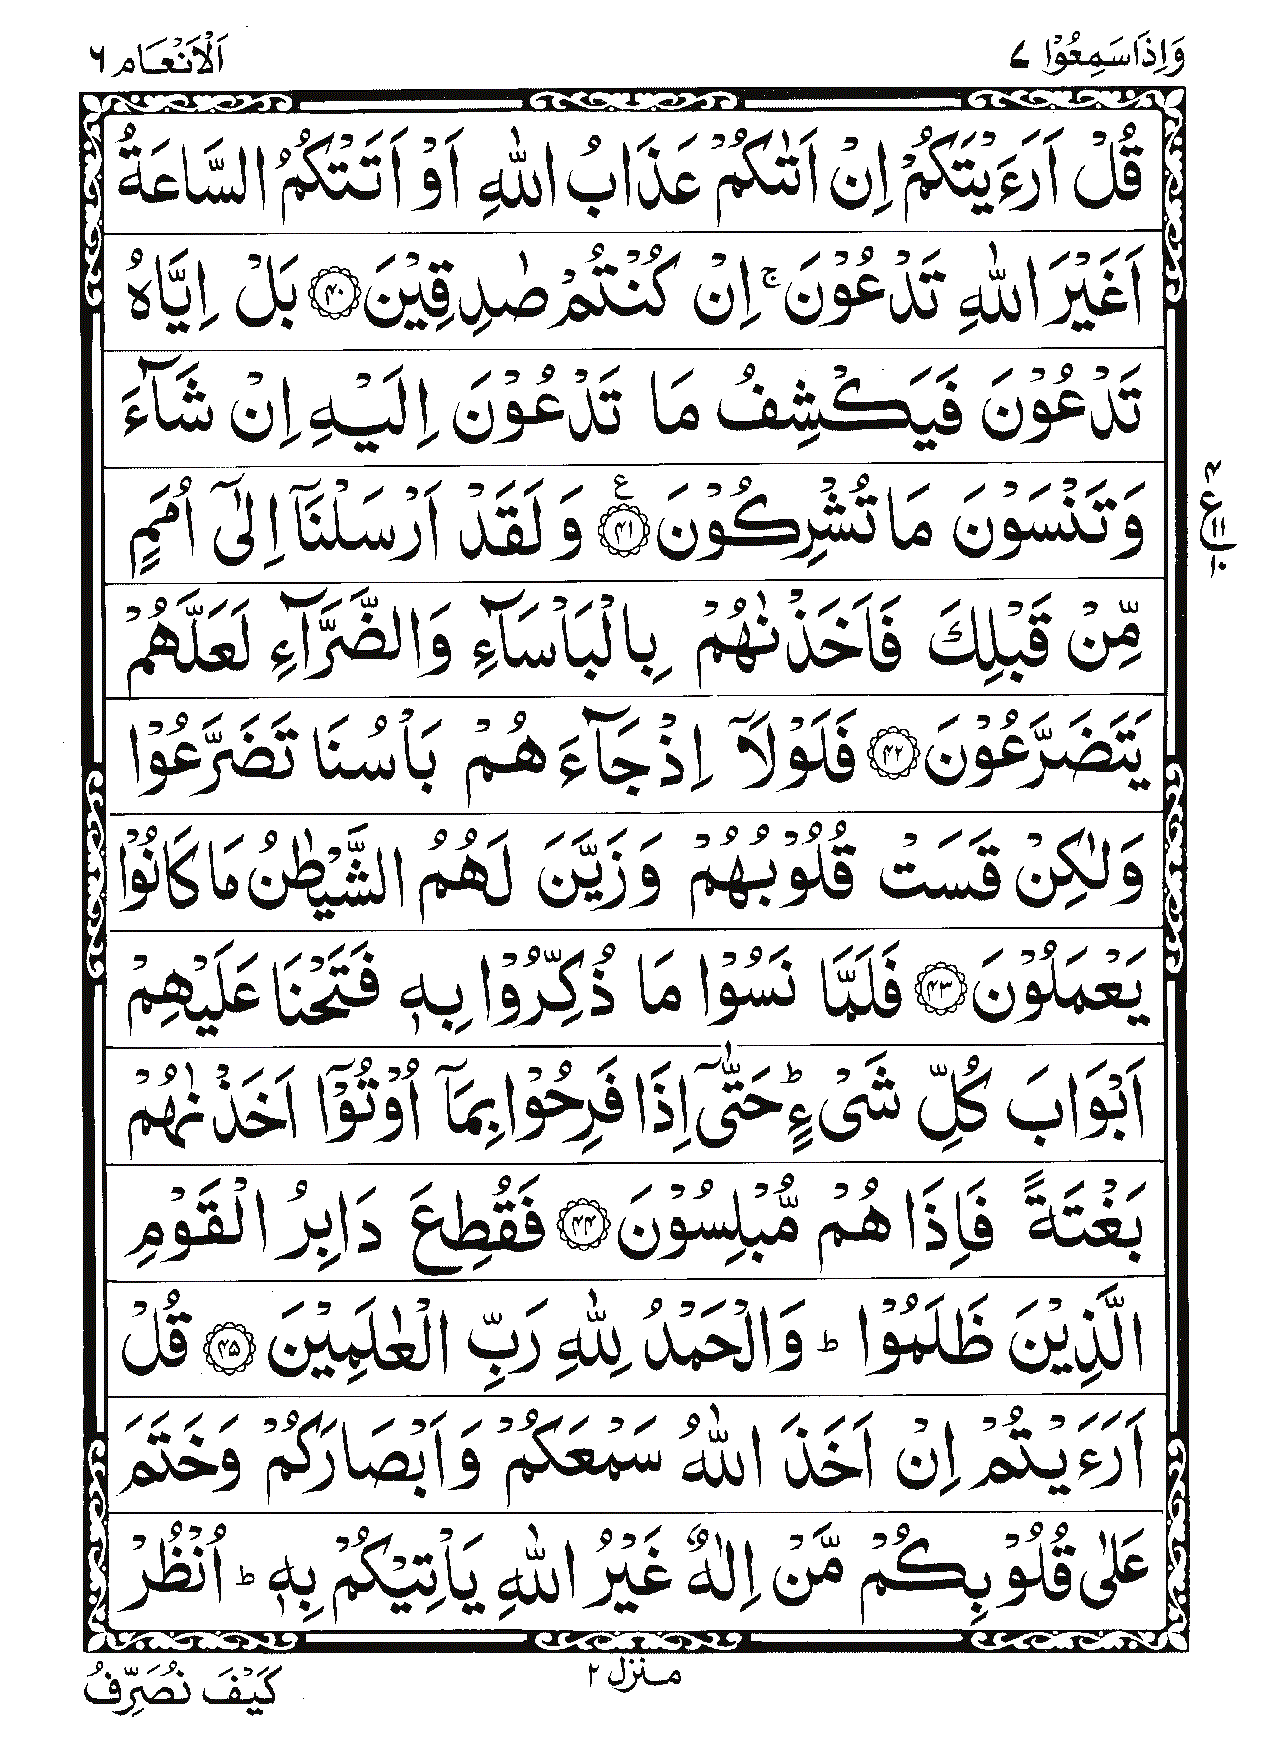 وَاِذَاسَمِعُوْا ٧
اَلْاَنْعَام ٦
قُلْ اَرَءَيْتَكُمْ اِنْ اَتٰىكُمْ عَذَابُ اللّٰهِ اَوْ اَتَتْكُمُ السَّاعَةُ
اَغَيْرَ اللّٰهِ تَدْعُوْنَ ۚ اِنْ كُنْتُمْ صٰدِقِيْنَ ﴿۴۰﴾ بَلْ اِيَّاهُ
تَدْعُوْنَ فَيَكْشِفُ مَا تَدْعُوْنَ اِلَيْهِ اِنْ شَآءَ
وَتَنْسَوْنَ مَا تُشْرِكُوْنَ ﴿۴۱﴾ ع وَلَقَدْ اَرْسَلْنَاۤ اِلٰۤى اُمَمٍ
۴
ع
۱۱
۱۰
مِّنْ قَبْلِكَ فَاَخَذْنٰهُمْ بِالْبَاْسَآءِ وَالضَّرَّآءِ لَعَلَّهُمْ
يَتَضَرَّعُوْنَ ﴿۴۲﴾ فَلَوْلَاۤ اِذْ جَآءَهُمْ بَاْسُنَا تَضَرَّعُوْا
وَلٰكِنْ قَسَتْ قُلُوْبُهُمْ وَزَيَّنَ لَهُمُ الشَّيْطٰنُ مَا كَانُوْا
يَعْمَلُوْنَ ﴿۴۳﴾ فَلَمَّا نَسُوْا مَا ذُكِّرُوْا بِهٖ فَتَحْنَا عَلَيْهِمْ
اَبْوَابَ كُلِّ شَىْءٍ ؕ حَتّٰۤى اِذَا فَرِحُوْا بِمَاۤ اُوْتُوْۤا اَخَذْنٰهُمْ
بَغْتَةً فَاِذَا هُمْ مُّبْلِسُوْنَ ﴿۴۴﴾ فَقُطِعَ دَابِرُ الْقَوْمِ
الَّذِيْنَ ظَلَمُوْا ؕ وَالْحَمْدُ لِلّٰهِ رَبِّ الْعٰلَمِيْنَ ﴿۴۵﴾ قُلْ
اَرَءَيْتُمْ اِنْ اَخَذَ اللّٰهُ سَمْعَكُمْ وَاَبْصَارَكُمْ وَخَتَمَ
عَلٰى قُلُوْبِكُمْ مَّنْ اِلٰهٌ غَيْرُ اللّٰهِ يَاْتِيْكُمْ بِهٖ ؕ اُنْظُرْ
منزل ٢
كَيْفَ نُصَرِّفُ